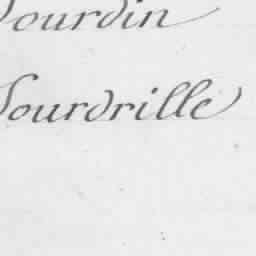 Jourdin
Sourdrille